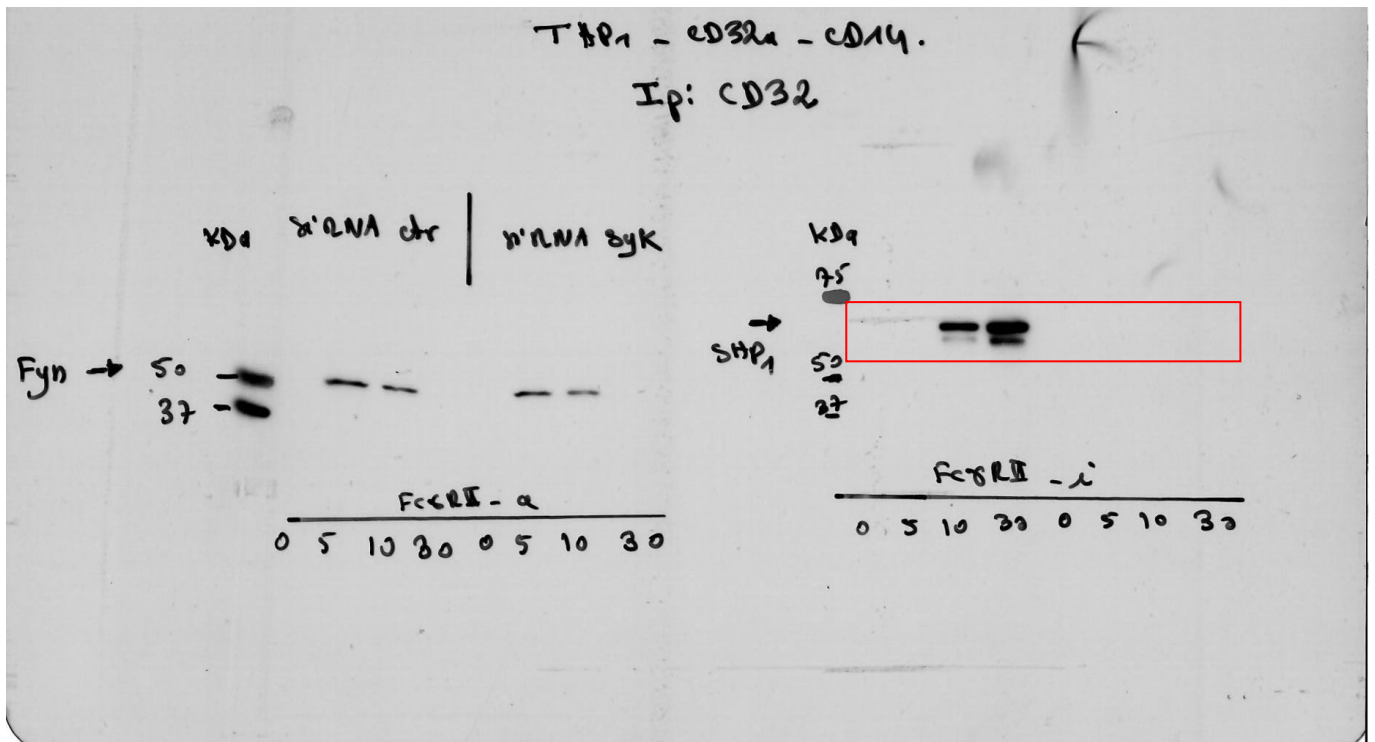 THP1 - CD32a - CD14.
Ip: CD32
KDa siRNA ctr siRNA Syk
Fyn → 50
37
FcγRII - a
0 5 10 30 0 5 10 30
kDa
75
SHP1
50
37
FcγRII - i
0 5 10 30 0 5 10 30